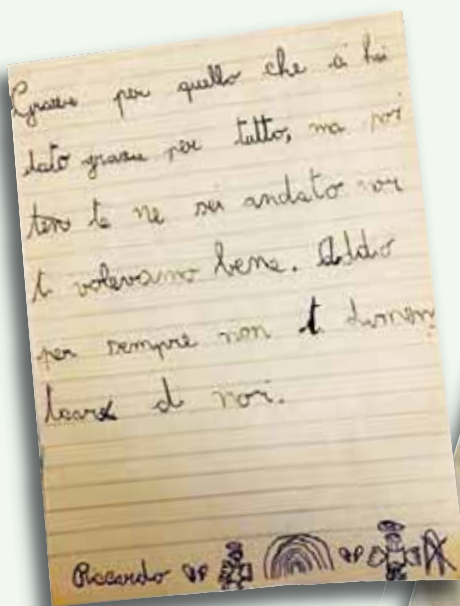 Grazie per quello che ci hai
dato grazie per tutto, ma poi
te ne sei andato noi
ti volevamo bene. Addio
per sempre non ti dimen
ticare di noi.
Riccardo